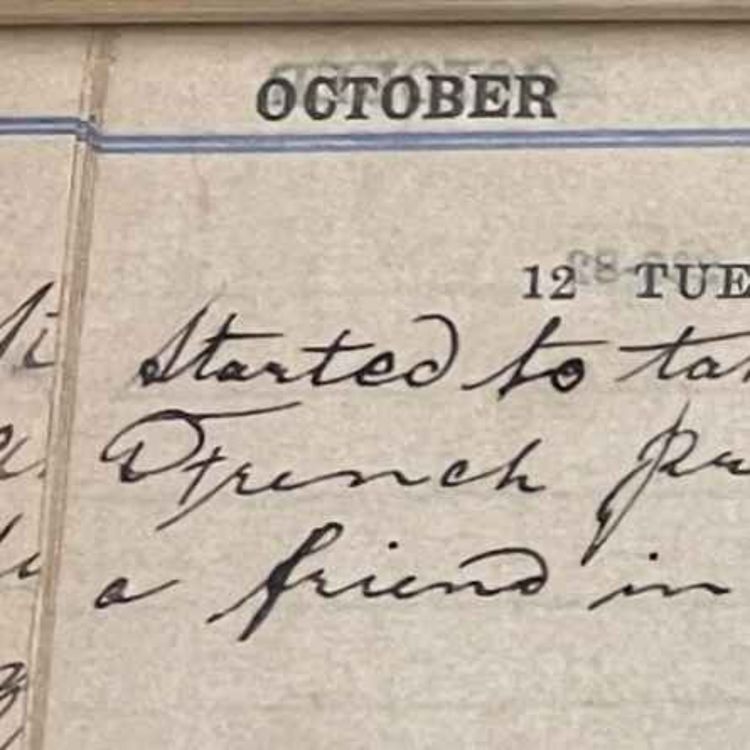 OCTOBER
12 TUE
Started to ta
French pr
a friend in